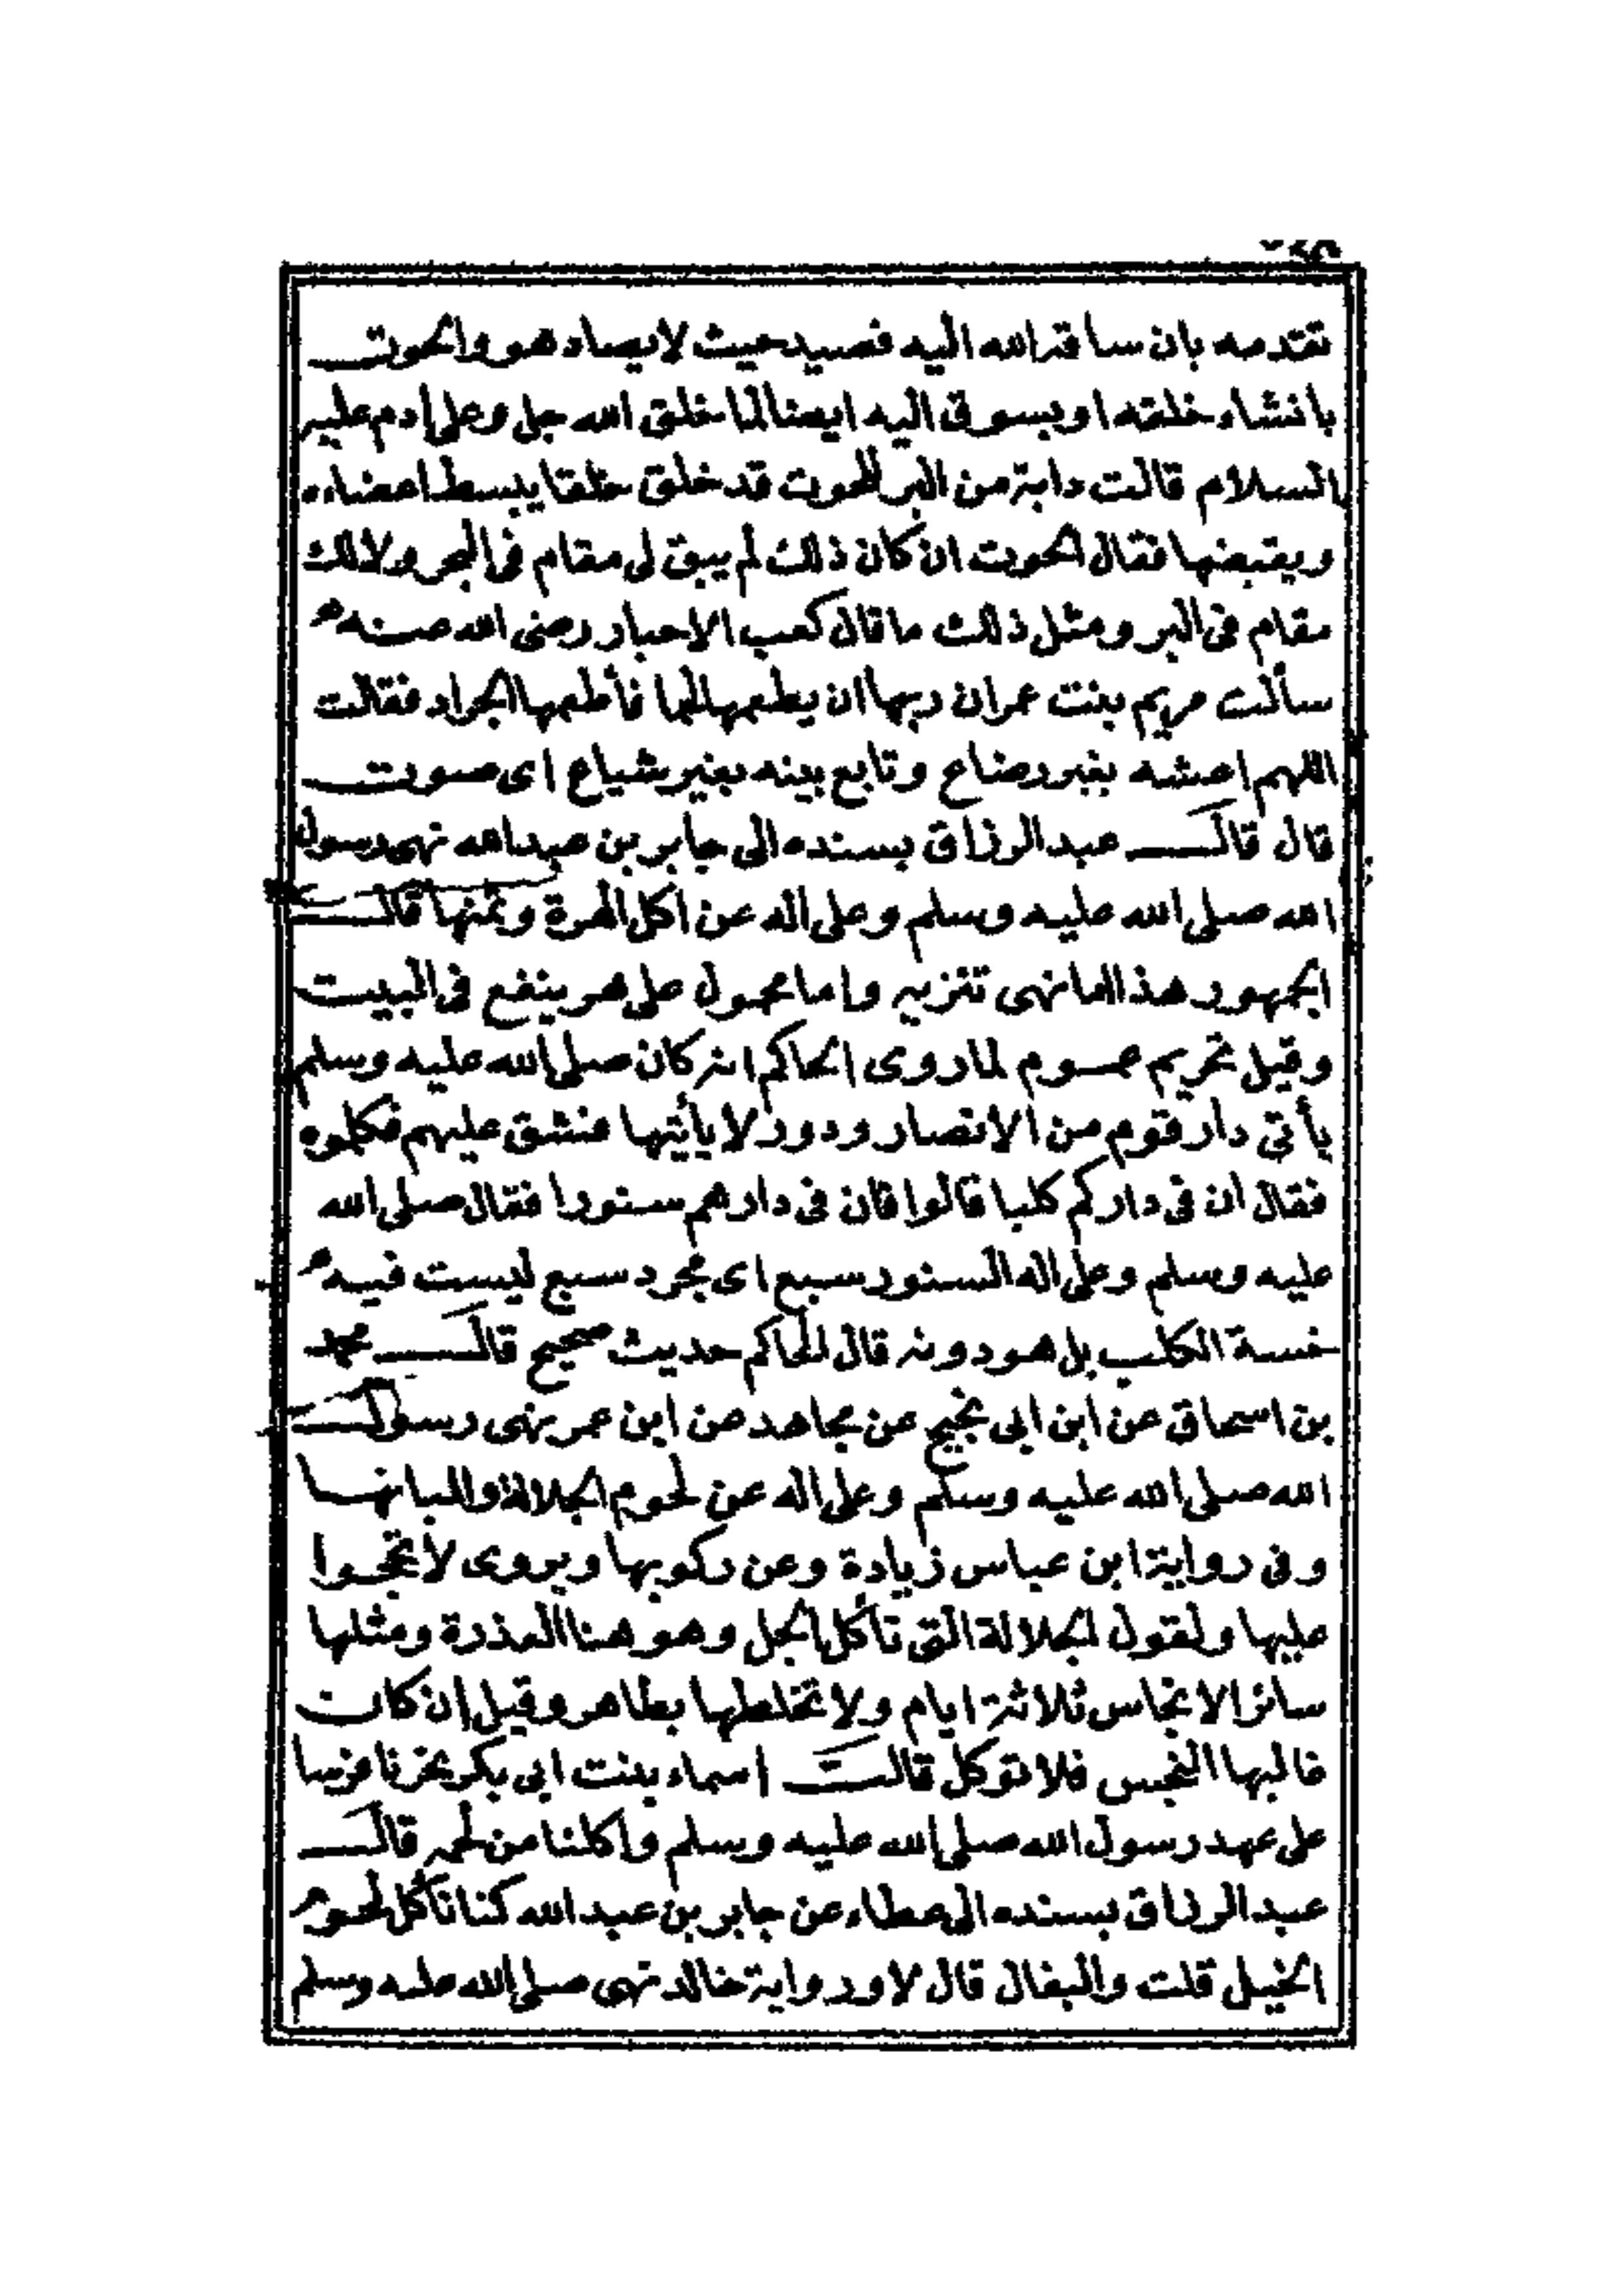 تقدمه بان ساقه الله اليه فصيد حيث لا يصاد هو والحوت
بانشاء خلقته او بسوق اليه ايضا لما خلق الله جل وعلى ادم عليه
السلام قالت دابة من البر للحوت قد خلق خلقا يبسط اعضاءه
ويقبضها فقال الحوت ان كان ذلك لم يبق لى مقام فى البحر ولا لك
مقام فى البر ومثل ذلك ما قال كعب الاحبار رضى الله عنه
سألت مريم بنت عمران ربها ان يطعمها لحما فأطعمها الجراد فقالت
اللهم اعشه بغير رضاع وتابع بينه بغير شياع اى صوت
قال قال عبد الرزاق بسنده الى جابر بن عبد الله نهى رسول
الله صلى الله عليه وسلم وعلى اله عن اكل الهرة وثمنها قال
الجمهور هذا اما نهى تنزيه واما محمول على هر ينفع فى البيت
وقيل تحريم عموم لما روى الحاكم انه كان صلى الله عليه وسلم
يأتى دار قوم من الانصار ودور لا يأتيها فشق عليهم فكلموه
فقال ان فى داركم كلبا قالوا فان فى دارهم سنورا فقال صلى الله
عليه وسلم وعلى اله السنور سبع اى مجرد سبع ليست فيه
خسة الكلب بل هو دونه قال الحاكم حديث صحيح قال محمد
بن اسحاق عن ابن ابى نجيح عن مجاهد عن ابن عمر نهى رسول
الله صلى الله عليه وسلم وعلى اله عن لحوم الجلالة والبانها
وفى رواية ابن عباس زيادة وعن ركوبها ويروى لا تحجوا
عليها ولقول الجلالة التى تأكل الجل وهو هنا العذرة ومثلها
سائر الانجاس ثلاثة ايام ولا تخلطها بطاهر وقيل ان كانت
غالبها النجس فلا توكل قالت اسماء بنت ابى بكر نحرنا فرسا
على عهد رسول الله صلى الله عليه وسلم واكلنا من لحمه قال
عبد الرزاق بسنده الى عطاء عن جابر بن عبد الله كنا نأكل لحوم
الخيل قلت والبغال قال لا ورواية خالد نهى صلى الله عليه وسلم